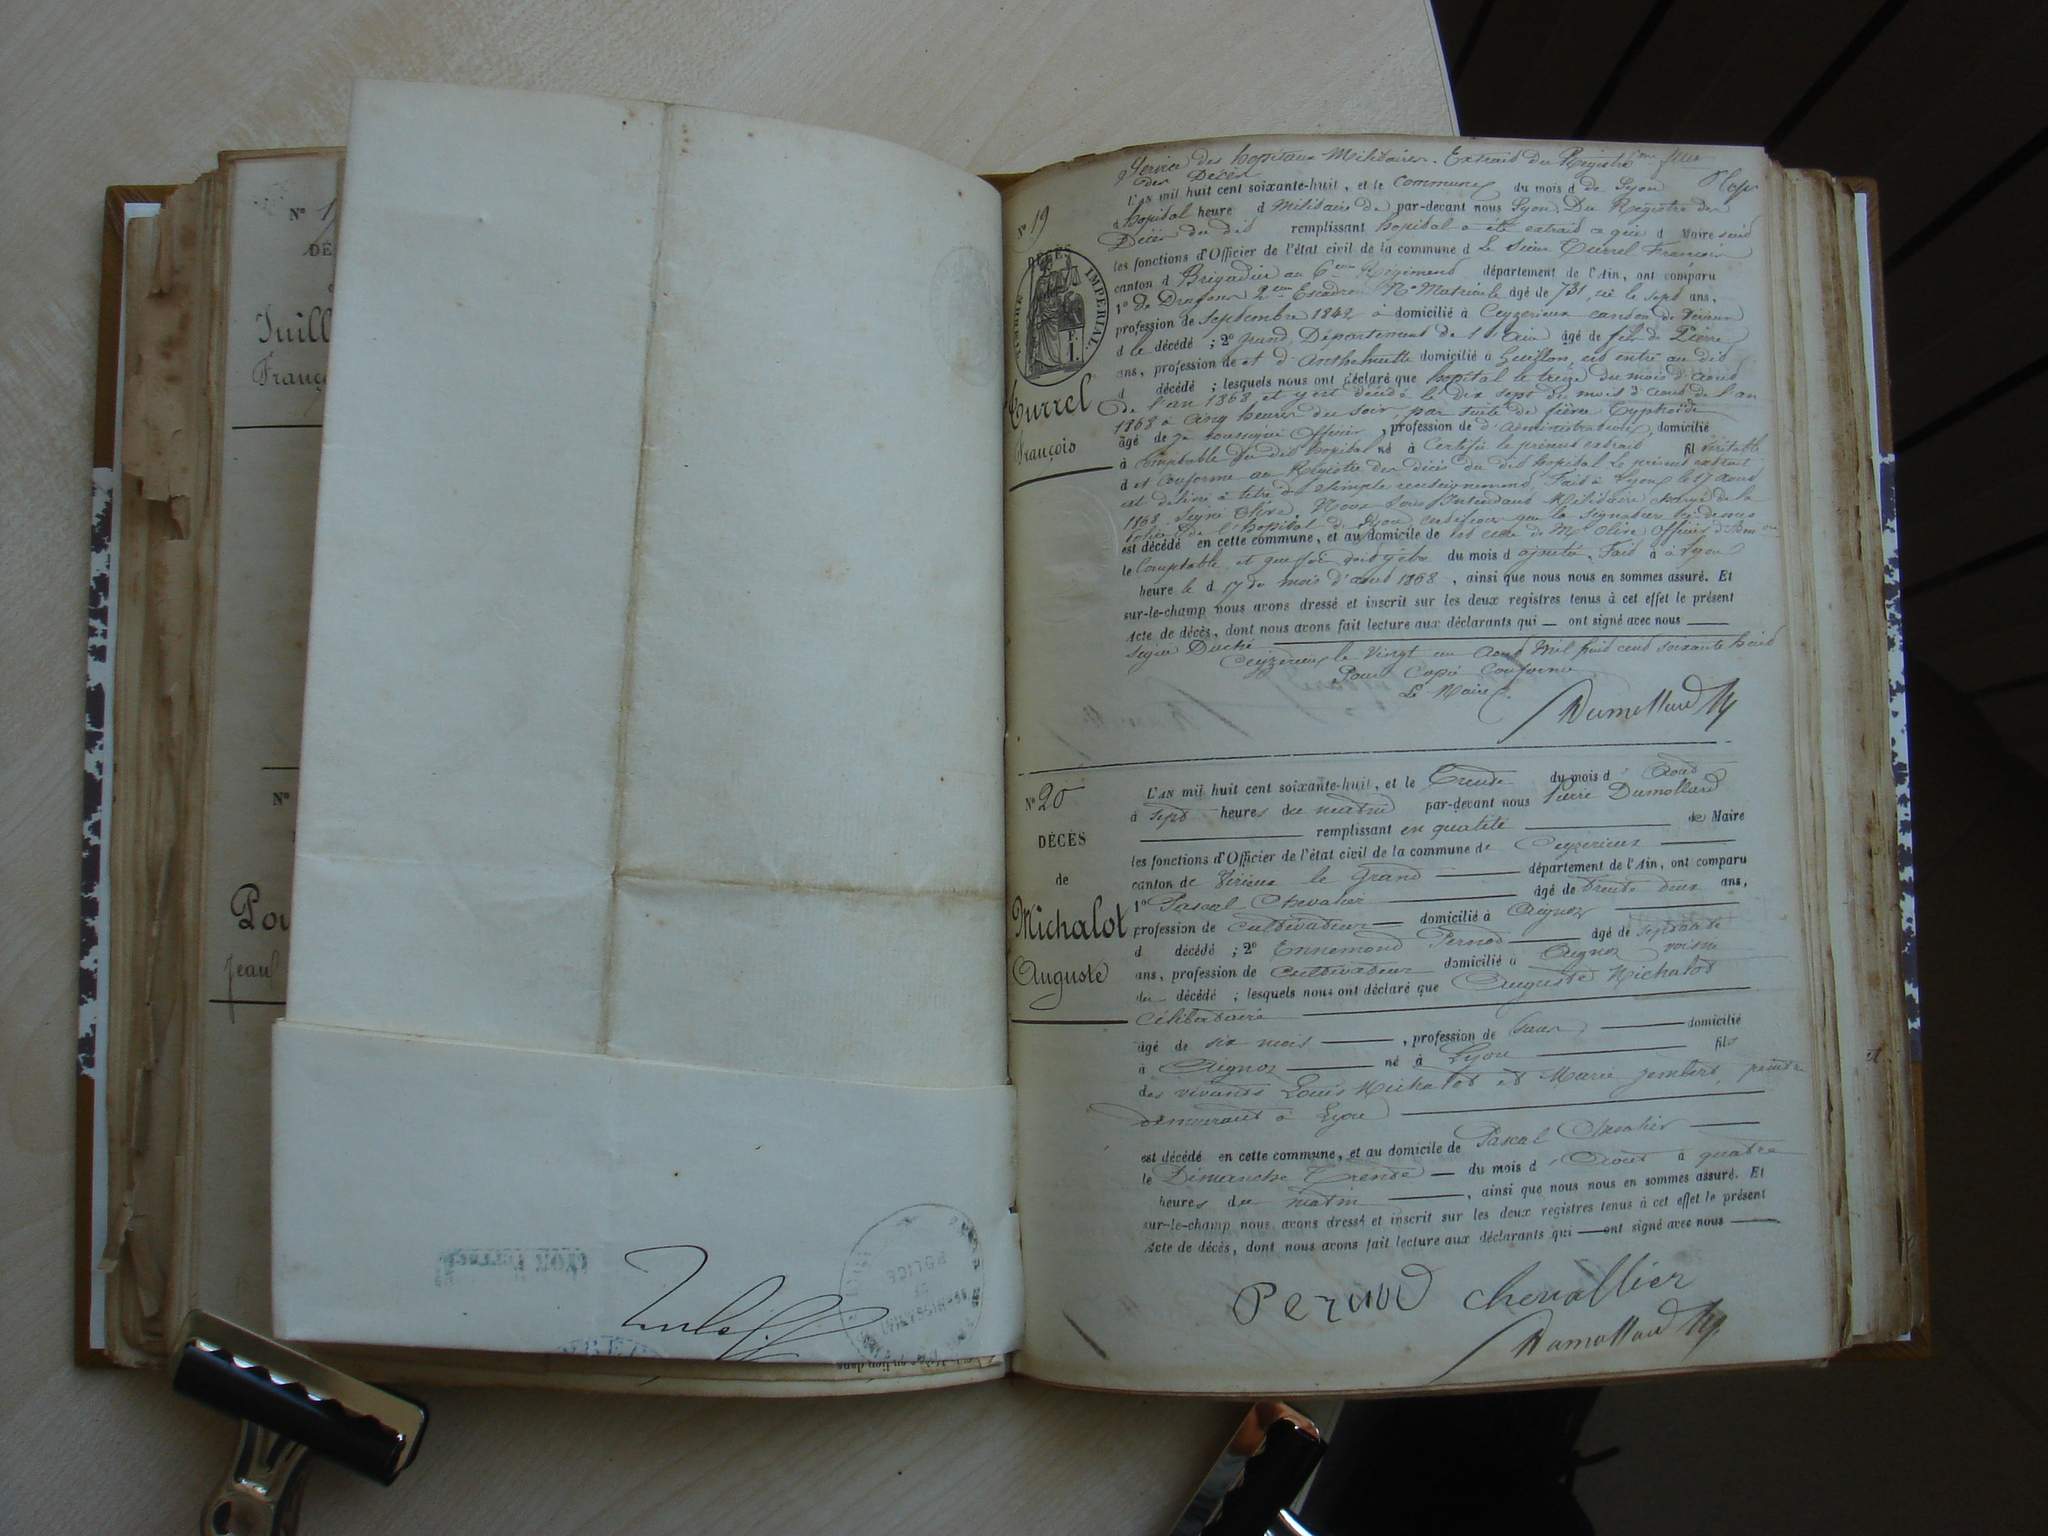 N° 1
DÉ
Juill
Franç
N°
Pou
Jean
POLICE
Service des hopitaux Militaires. Extrait du Registre
des Décès
N° 19
DÉCÈS
TIMBRE IMPÉRIAL
Currel
François
L'AN mil huit cent soixante-huit, et le Commune du mois d de Lyon
à hopital heure d Militaire de par-devant nous Lyon. Du Registre des
Décès du dit remplissant hopital a été extrait ce qui d Maire suit
les fonctions d'Officier de l'état civil de la commune d Le Sieur Currel François
canton d Brigadier au 6eme Régiment département de l'Ain, ont comparu
1° de Dragons 2eme Escadron N° Matricule âgé de 731, né le sept ans,
profession de Septembre 1842 à domicilié à Ceyzerieux canton de Virieux
d le décédé ; 2° grand, Département de l'Ain âgé de fils de Pierre
ans, profession de et d'Anthelmette domicilié à Guillon, est entré au dit
d décédé ; lesquels nous ont déclaré que hopital le treize du mois d'aout
De l'an 1868 et y est décédé le dix sept du mois d'aout de l'an
1868 à cinq heures du soir, par suite de fièvre Typhoïde
âgé de Je soussigné Officier , profession de d'administration, domicilié
à Comptable du dit hopital né à Certifie le présent extrait fil véritable
d et conforme au Registre des décès du dit hopital Le présent extrait
est délivré à titre de simple renseignement, Fait à Lyon le 17 aout
1868 Signé Olive. Nous Sous Intendant Militaire chargé de la
police de l'hopital de Lyon certifions que la signature ci-dessus
est décédé en cette commune, et au domicile de est celle de Mr Olive Officier d'Adm on
le Comptable et que foi doit y être du mois d ajoutée. Fait à à Lyon
heure le d 17 du mois d'aout 1868 , ainsi que nous nous en sommes assuré. Et
sur-le-champ nous avons dressé et inscrit sur les deux registres tenus à cet effet le présent
Acte de décès, dont nous avons fait lecture aux déclarants qui ont signé avec nous
Signé Duché
Ceyzerieux le Vingt un Aout Mil huit cent soixante huit
Pour Copie Conforme
Le Maire
Dumollard
N° 20
DÉCÈS
de
Michalot
Auguste
L'AN mil huit cent soixante-huit, et le Trente du mois d' Aout
à sept heures du matin par-devant nous Pierre Dumollard
remplissant en qualité de Maire
les fonctions d'Officier de l'état civil de la commune de Ceyzerieux
canton de Virieux le grand département de l'Ain, ont comparu
1° Pascal Chevalier âgé de trente deux ans,
profession de Cultivateur domicilié à Aignoz
d décédé ; 2° Ennemond Pernod âgé de septante
ans, profession de Cultivateur domicilié à Aignoz voisin
du décédé ; lesquels nous ont déclaré que Auguste Michalot
Célibataire
âgé de six mois , profession de sans domicilié
à Aignoz né à Lyon fils
des vivants Louis Michalot et Marie Jembert, peintre
demeurant à Lyon
est décédé en cette commune, et au domicile de Pascal Chevalier
le Dimanche Trente du mois d' Aout à quatre
heures du matin , ainsi que nous nous en sommes assuré. Et
sur-le-champ nous avons dressé et inscrit sur les deux registres tenus à cet effet le présent
Acte de décès, dont nous avons fait lecture aux déclarants qui ont signé avec nous
Pernod chevallier
Dumollard